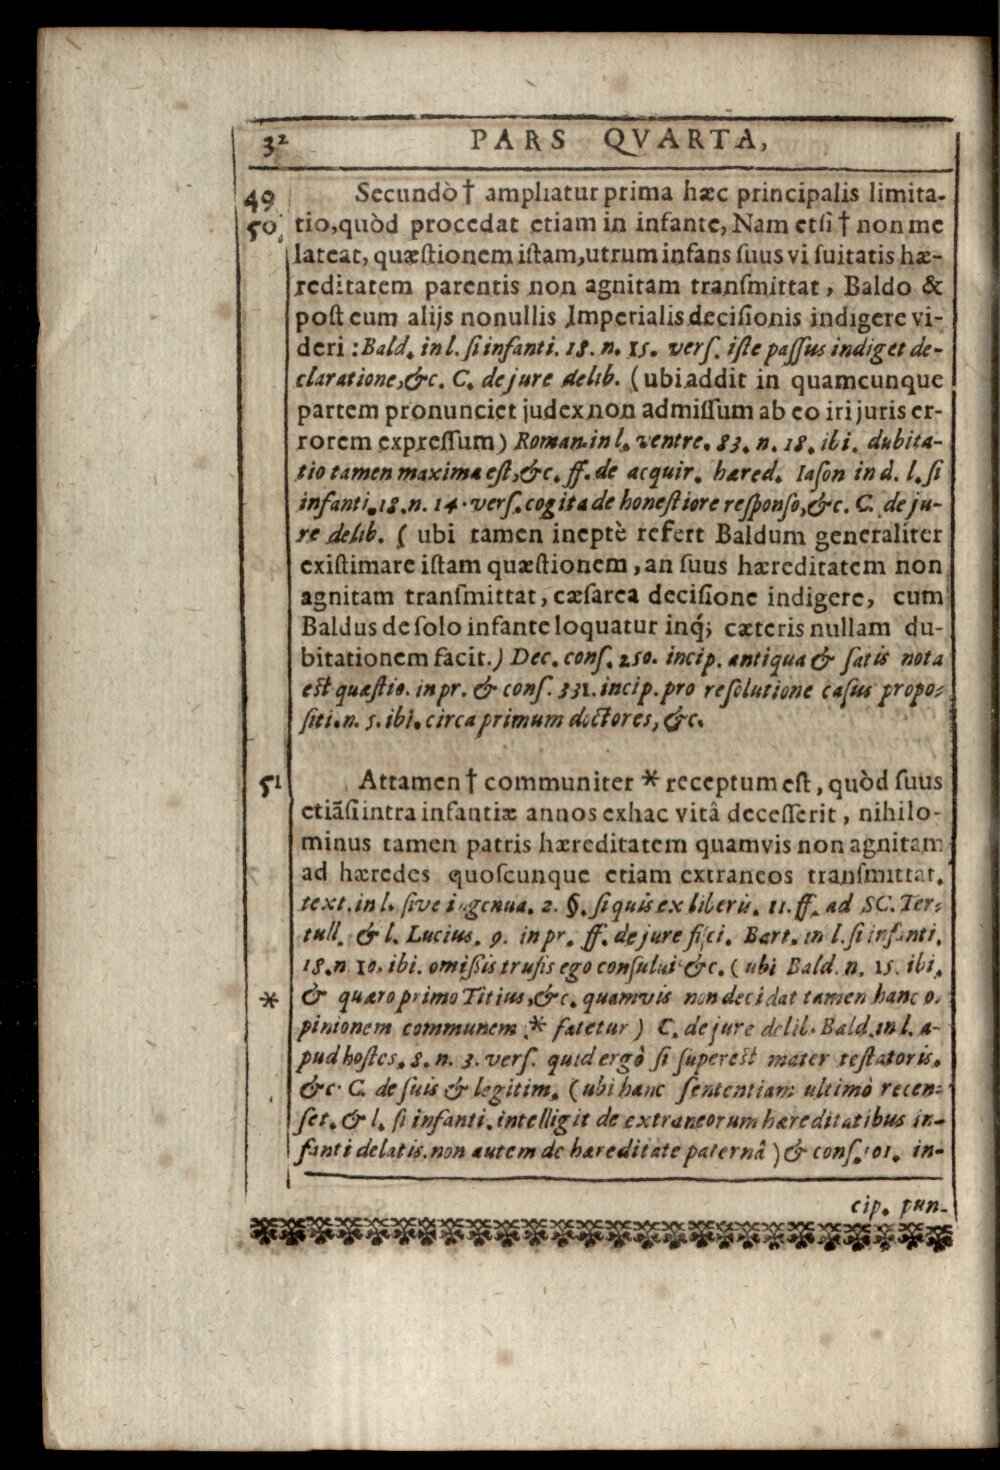 32 PARS QVARTA,
49 Secundò † ampliatur prima hæc principalis limita-
50 tio, quòd procedat etiam in infante, Nam etsi † non me
lateat, quæstionem istam, utrum infans suus vi suitatis hæ-
reditatem parentis non agnitam transmittat, Baldo &
post eum alijs nonullis Imperialis decisionis indigere vi-
deri: Bald. in l. si infanti. 18. n. 15. vers. iste passus indiget de-
claratione, &c. C. de jure delib. (ubi addit in quamcunque
partem pronunciet judex non admissum ab eo iri juris er-
rorem expressum) Roman. in l. ventre. 83. n. 18. ibi. dubita-
tio tamen maxima est, &c. ff. de acquir. hæred. Iason in d. l. si
infanti. 18. n. 14. vers. cogita de honestiore responso, &c. C. de ju-
re delib. ( ubi tamen ineptè refert Baldum generaliter
existimare istam quæstionem, an suus hæreditatem non
agnitam transmittat, cæsarea decisione indigere, cum
Baldus de solo infante loquatur inq́; cæteris nullam du-
bitationem facit.) Dec. cons. 250. incip. antiqua & satis nota
est quæstio. in pr. & cons. 331. incip. pro resolutione casus propo-
siti. n. 5. ibi. circa primum doctores, &c.
51 Attamen † communiter * receptum est, quòd suus
etiãsi intra infantiæ annos ex hac vitâ decesserit, nihilo-
minus tamen patris hæreditatem quamvis non agnitam
ad hæredes quoscunque etiam extraneos transmittat.
text. in l. sive ingenua. 2. §. si quis ex liberis. 11. ff. ad SC. Ter-
tull. & l. Lucius. 9. in pr. ff. de jure fisci. Bart. in l. si infanti.
18. n. 10. ibi. omissis trufis ego consului &c. (ubi Bald. n. 15. ibi.
* & quæro primo Titius, &c. quamvis non decidat tamen hanc o-
pinionem communem * fatetur) C. de jure delib. Bald. in l. a-
pud hostes. 8. n. 3. vers. quid ergò si superest mater testatoris.
&c. C. de suis & legitim. (ubi hanc sententiam ultimò recen-
set. & l. si infanti. intelligit de extraneorum hæreditatibus in-
fanti delatis. non autem de hæreditate paternâ) & cons. 101. in-
cip. pun-